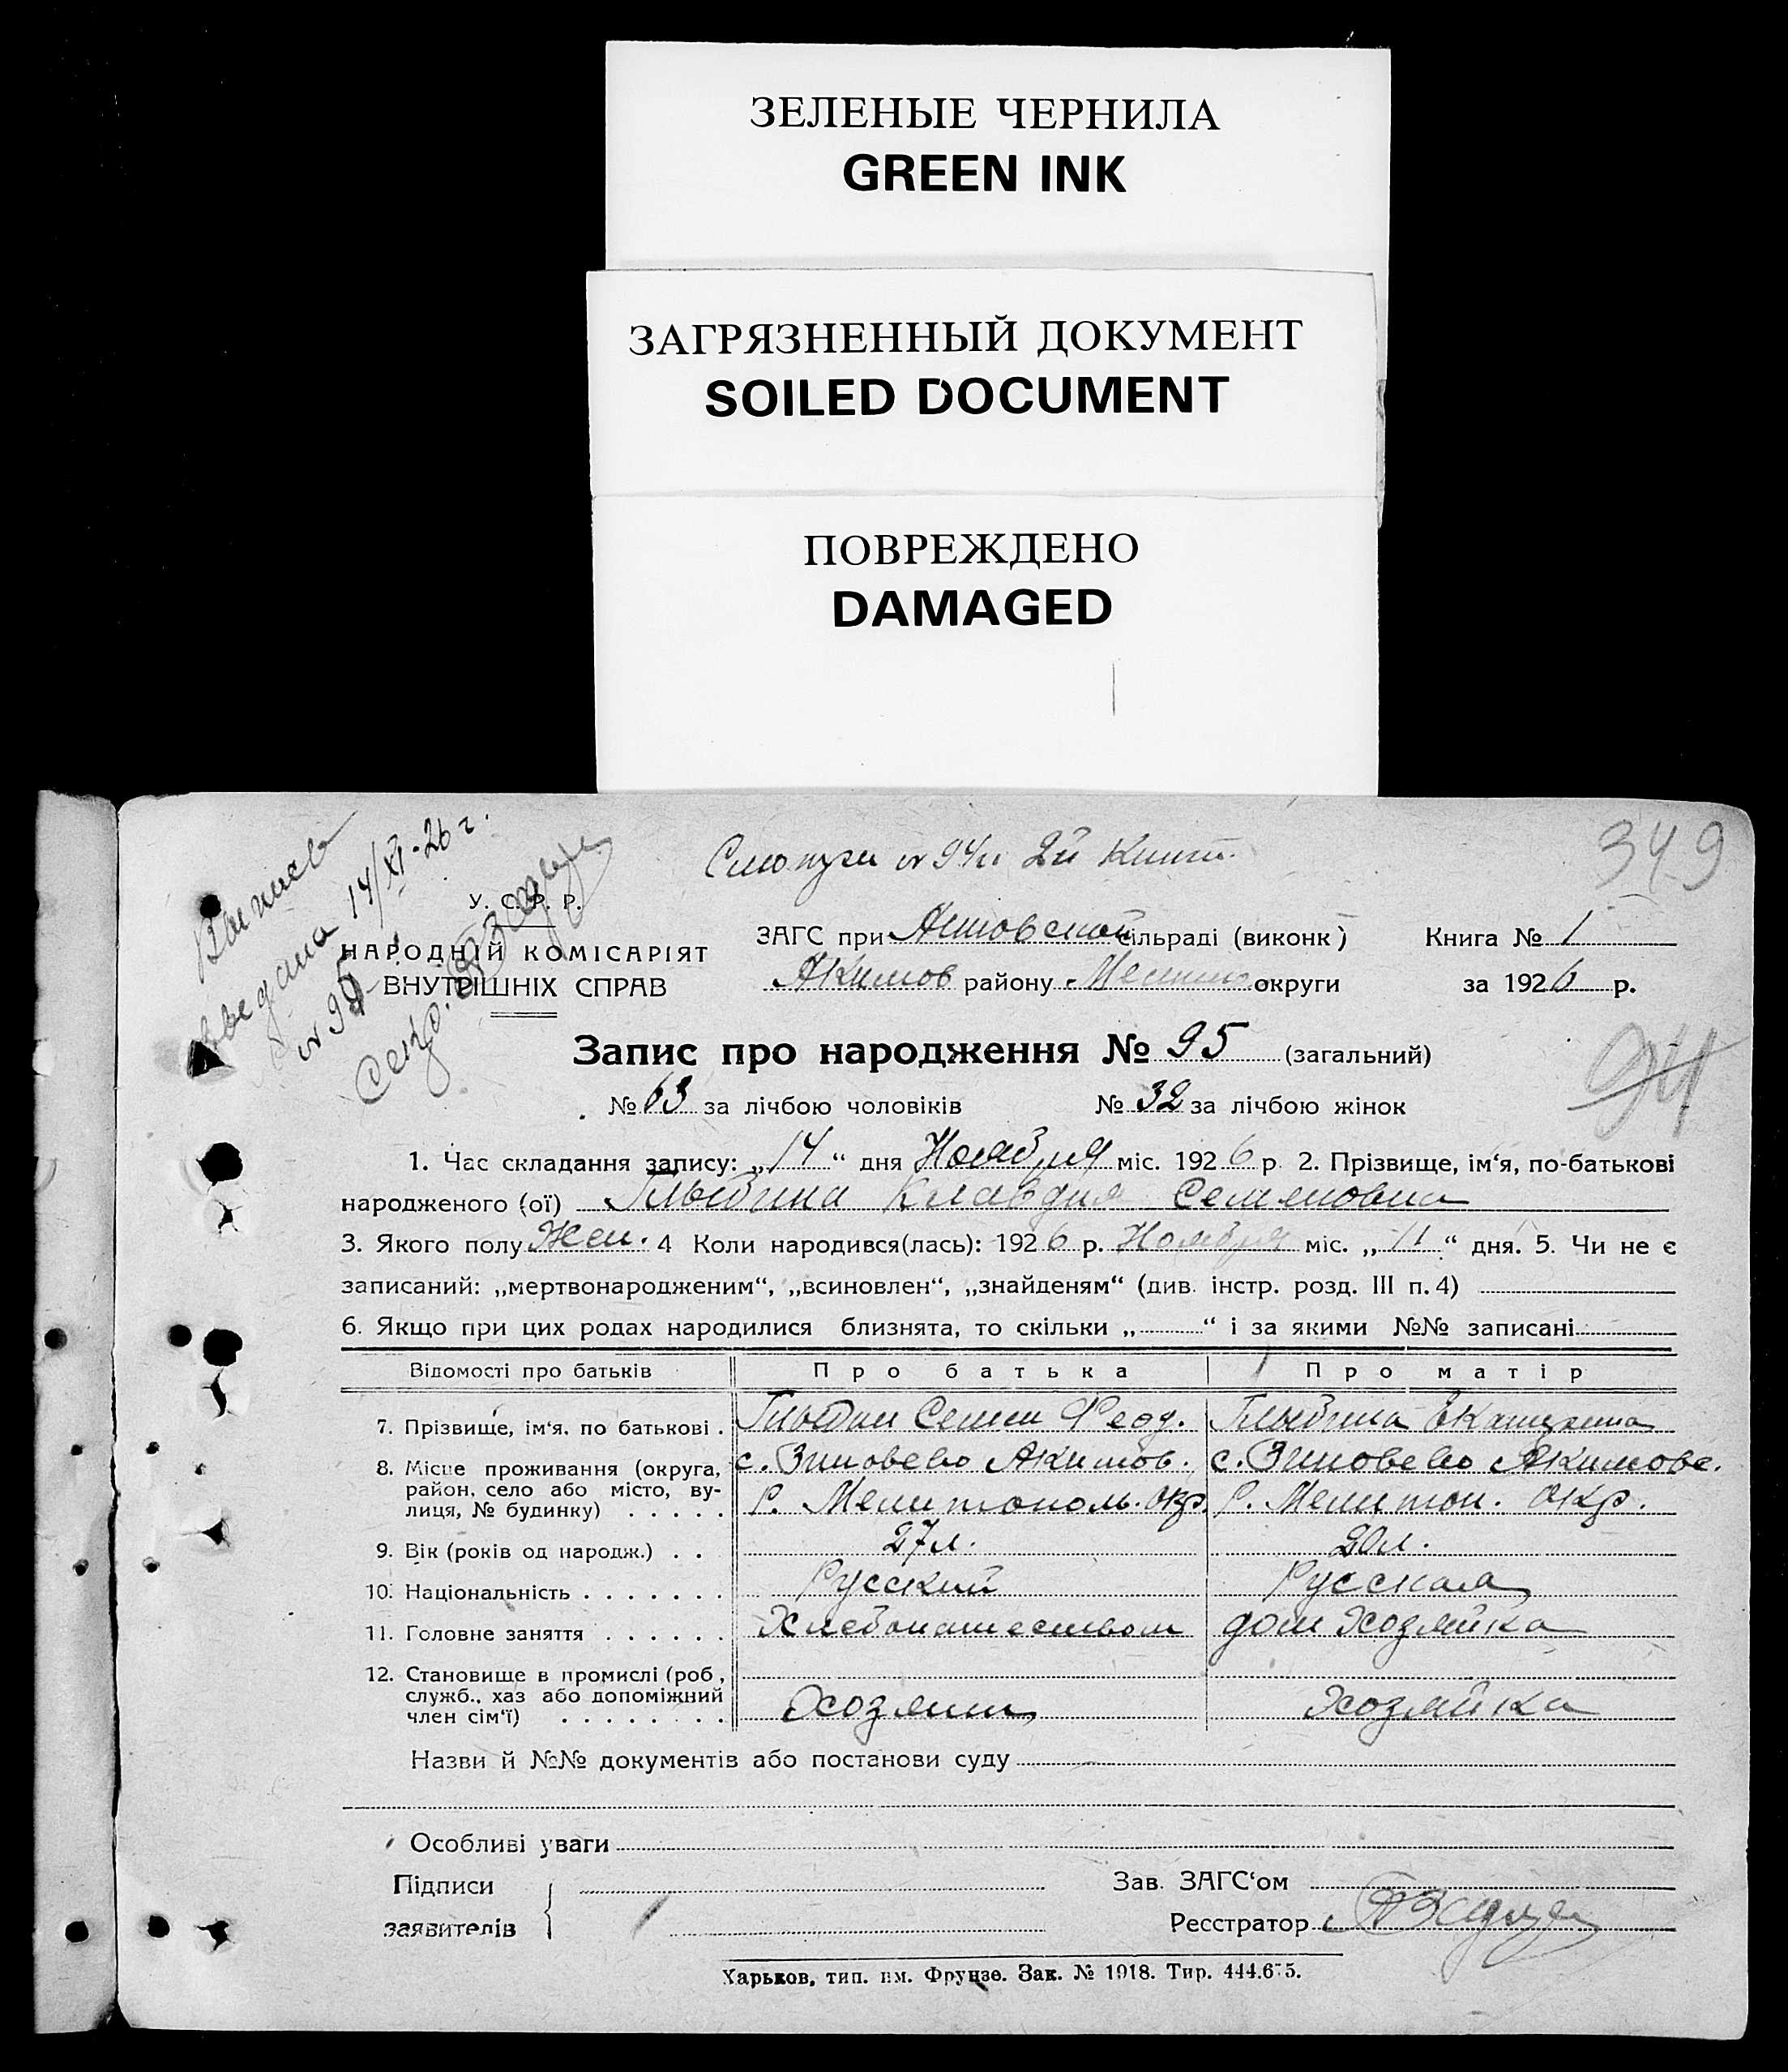 ЗЕЛЕНЫЕ ЧЕРНИЛА
GREEN INK
ЗАГРЯЗНЕННЫЙ ДОКУМЕНТ
SOILED DOCUMENT
ПОВРЕЖДЕНО
DAMAGED
349
2й
14/XI-26 г.
№ 95
У. С. Р. Р.
НАРОДНІЙ КОМІСАРІЯТ
ВНУТРІШНІХ СПРАВ
ЗАГС при сільраді (виконк) Книга № 1
Акимов району округи за 1926 р.
Запис про народження № 95 (загальний)
94
№ 63 за лічбою чоловіків № 32 за лічбою жінок
1. Час складання запису: „14“ дня Ноября міс. 1926 р. 2. Прізвище, ім‘я, по-батькові
народженого (ої) Глыбина Клавдия Семеновна
3. Якого полу Жен. 4 Коли народився(лась): 1926 р. Ноября міс. „11“ дня. 5. Чи не є
записаний: „мертвонародженим“, „всиновлен“, „знайденям“ (див. інстр. розд. III п. 4)
6. Якщо при цих родах народилися близнята, то скільки „ “ і за якими №№ записані
Відомості про батьків Про батька Про матір
7. Прізвище, ім‘я, по батькові . Глыбин Семен Феод. Глыбина Екатерина
8. Місце проживання (округа, район, село або місто, вулиця, № будинку) . . . . . с. Зиновево Акимов. Р. Мелитополь. окр. с. Зиновево Акимовс. Р. Мелитоп. окр.
9. Вік (років од народж.) . . 27 л. 20 л.
10. Національність . . . . . . . Русский Русская
11. Головне заняття . . . . . . Хлебопашеством дом Хозяйка
12. Становище в промислі (роб, служб., хаз або допоміжний член сім‘ї) . . . . . . . . Хозяин Хозяйка
Назви й №№ документів або постанови суду
Особливі уваги
Підписи Зав. ЗАГС‘ом
заявителів Реєстратор
Харьков, тип. им. Фрунзе. Зак. № 1918. Тир. 444.675.